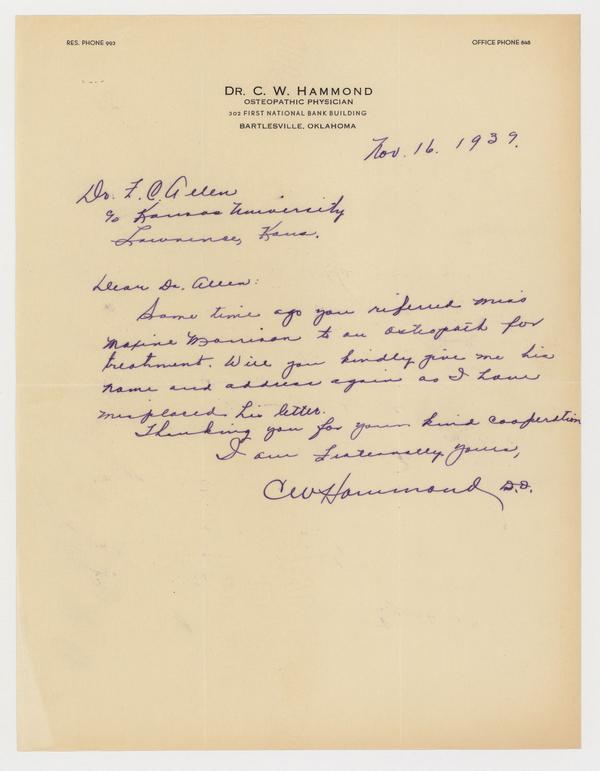 RES. PHONE 993
OFFICE PHONE 848
DR. C. W. HAMMOND
OSTEOPATHIC PHYSICIAN
302 FIRST NATIONAL BANK BUILDING
BARTLESVILLE, OKLAHOMA
Nov. 16. 1939.
Dr. F. C. Allen
c/o Kansas University
Lawrence, Kans.
Dear Dr. Allen:
Some time ago you referred Miss
Maxine Morrison to an osteopath for
treatment. Will you kindly give me his
name and address again as I have
misplaced his letter.
Thanking you for your kind cooperation
I am Fraternally yours,
CW Hammond D.O.